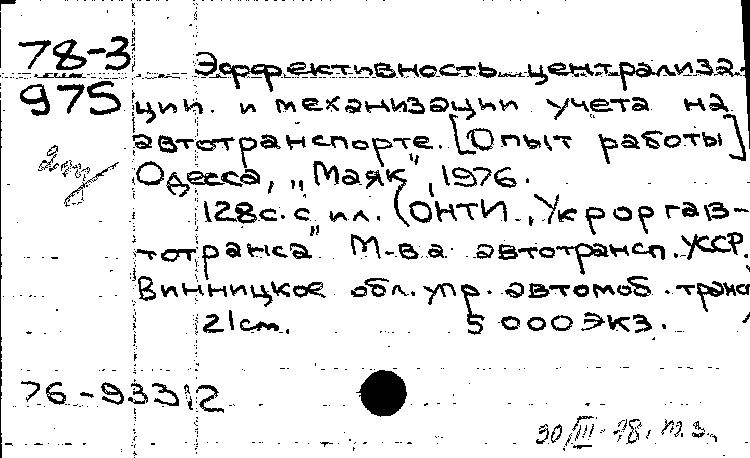 78-3 Эффективность централиза-
975 ции и механизации учета на
автотранспорте. [Опыт работы]
Одесса, „Маяк", 1976.
128с. с ил. (ОНТИ „Укроргав-
тотранса" М-ва автотрансп. УССР.
Винницкое обл. упр. автомоб. трансп
21см. 5 000 экз.
76-93312
30/III-78. т.з.